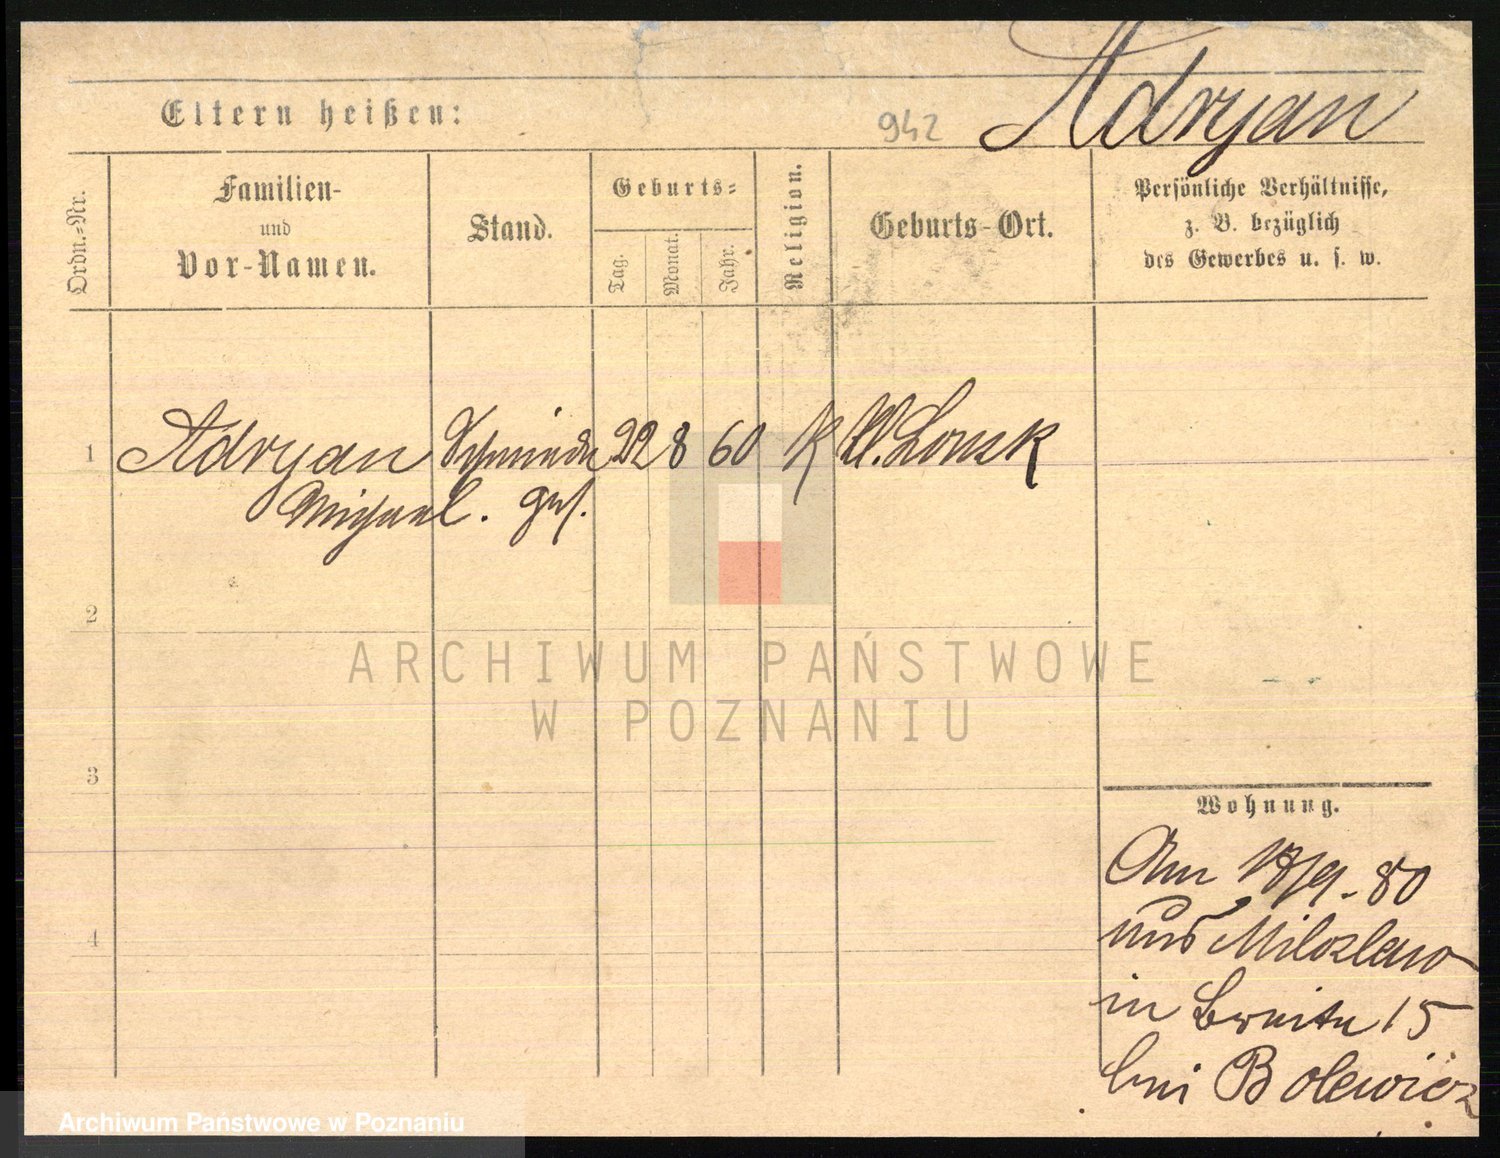 Adryan
942
Eltern heißen:
Ordn.-Nr.
Familien-
und
Vor-Namen.
Stand.
Geburts-
Tag.
Monat.
Jahr.
Religion.
Geburts-Ort.
Persönliche Verhältnisse,
z. B. bezüglich
des Gewerbes u. s. w.
1 Adryan Schmiede 22 8 60 K
Michael. ges.
2
3
4
Wohnung.
Am 18/9. 80
aus Miloslaw
in Breite 15
bei Bolewicz
ARCHIWUM PAŃSTWOWE
W POZNANIU
Archiwum Państwowe w Poznaniu